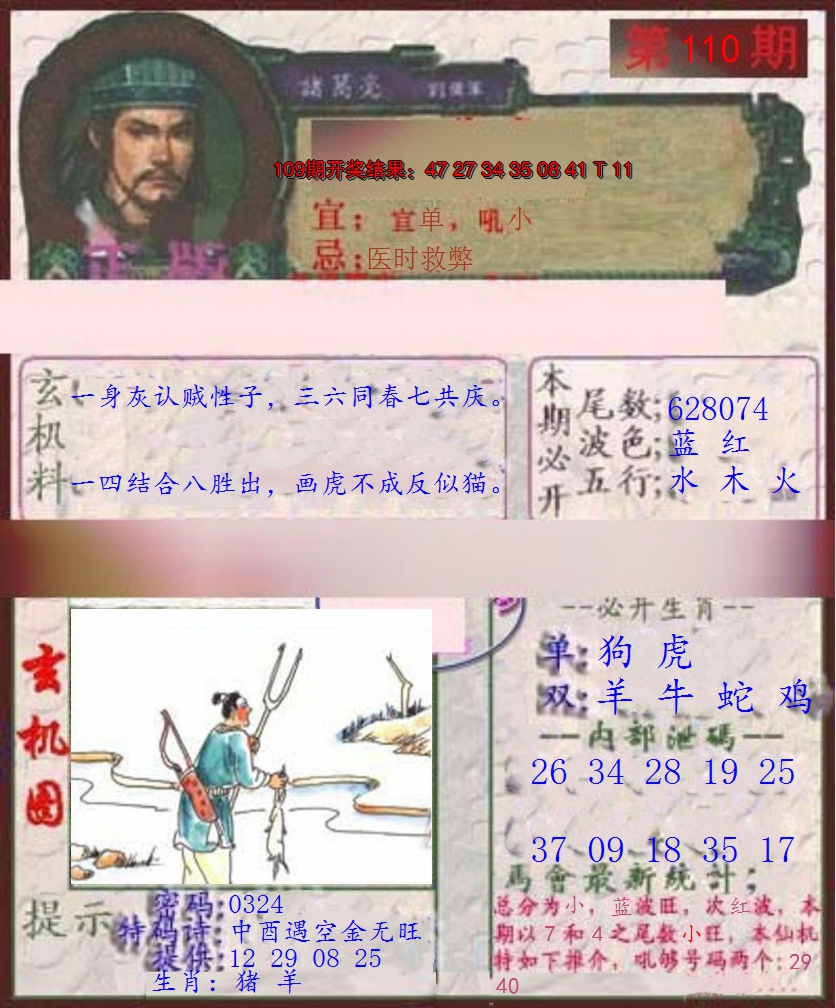 第110期
諸葛亮
109期开奖结果：47 27 34 35 08 41 T 11
宜：宜单，吼小
忌；医时救弊
正版
玄机料
一身灰认贼性子，三六同春七共庆。
一四结合八胜出，画虎不成反似猫。
本期必开
尾数;628074
波色;蓝 红
五行;水 木 火
玄机图
--必开生肖--
单:狗 虎
双:羊 牛 蛇 鸡
一内部泄碼一
26 34 28 19 25
37 09 18 35 17
馬會最新統計;
总分为小，蓝波旺，次红波，本
期以7和4之尾数小旺，本仙机
特如下推介，吼够号码两个:29
40
提示
密码:0324
特码诗:中酉遇空金无旺
提供:12 29 08 25
生肖：猪 羊